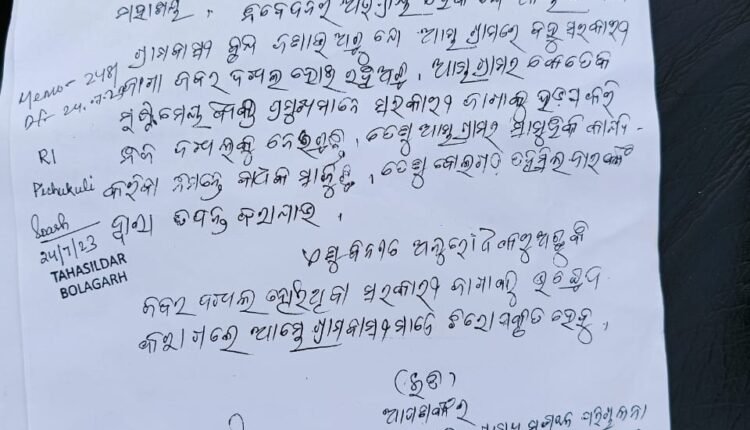 ମହାଶୟ,
ଗ୍ରାମବାସୀ ଜଣାଇ ଅଛୁ ଯେ ଆମ୍ଭ ଗ୍ରାମରେ ବହୁ ସରକାରୀ
ଜାଗା ଜବର ଦଖଲ ହୋଇ ରହିଅଛି, ଆମ୍ଭ ଗ୍ରାମର କେତେକ
ମୁଷ୍ଟିମେୟ ସରକାରୀ ଜାଗାକୁ ହଡ଼ପ କରି
ନିଜ ଦଖଲକୁ ନେଇଛନ୍ତି, ତେଣୁ ଆମ୍ଭ ଗ୍ରାମର ସାମୁହିକ କାର୍ଯ୍ୟ
କରିବା ନିମନ୍ତେ ବାଧକ ସାଜୁଛି, ତେଣୁ ବୋଲଗଡ଼ ତହସିଲଦାରଙ୍କ
ଦ୍ୱାରା ତଦନ୍ତ କରାଯାଉ,
ଏଣୁ ବିନୀତ ଅନୁରୋଧ କରୁଅଛୁ କି
ଜବର ଦଖଲ ହୋଇଥିବା ସରକାରୀ ଜାଗାକୁ ଉଚ୍ଛେଦ
କରାଗଲେ ଆମ୍ଭେ ଗ୍ରାମବାସୀମାନେ ଚିରକୃତଜ୍ଞ ହେବୁ,
(ଇତି)
ଆପଣଙ୍କର
Memo-2481
Dt- 24.7.23
RI
Pichukuli
24/7/23
TAHASILDAR
BOLAGARH